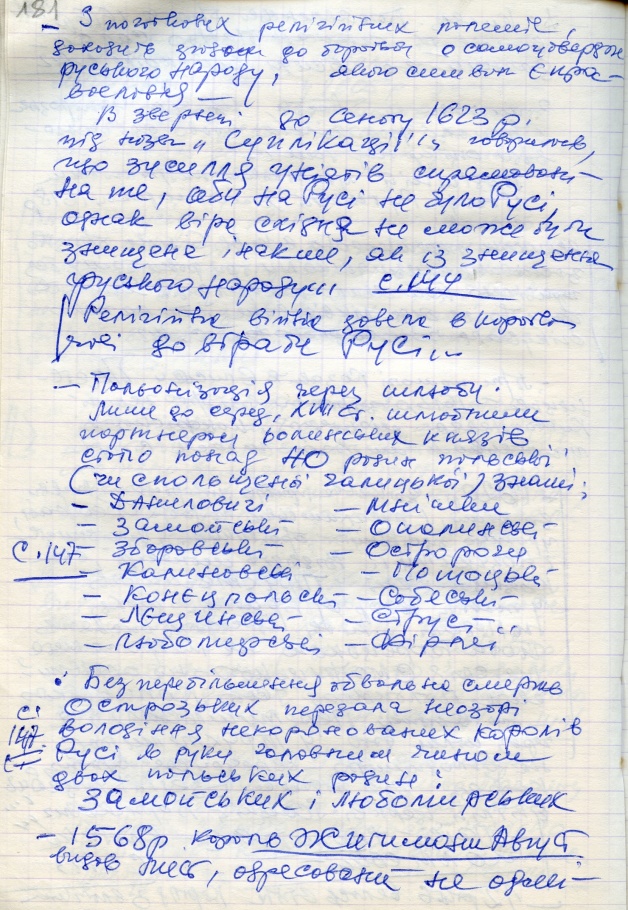 181
— З початкових релігійних полемік,
доходить згодом до боротьби о самоутвердж.
руського народу, якого символ є пра-
вославія —
В зверненні до Сенату 1623 р.
під назв. „Суплікації" говорилось,
що зусилля уніатів спрямовані
на те, аби на Русі не було Русі,
однак віра східня не може бути
знищена інакше, як із знищення
руського народу„ с.144
Релігійна війна довела в короткі
до втрати Русі...
— Польонізація через шлюби.
Лише до серед. XVII ст. шлюбними
партнерами волинських князів
стало понад 40 родин польської
(чи спольщеної галицької) знаті;
— Даниловичі — Мнішки
— Замойські — Опалинські
с.147 — Зборовські — Остророги
— Калиновські — Потоцькі
— Конєцпольські — Собєські
— Лещинські — Струсі
— Любомирські — Фірлеї
• Без перебільшення обвальна смерть
с. Острозьких передала неозорі
147 володіння некоронованих королів
Русі до руки головним чином
двох польських родин:
Замойських і Любомирських
— 1568 р. король Жигимонт Август
видав лист, адресований не одній